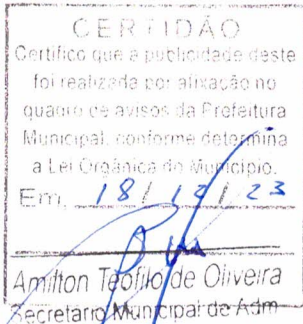 CERTIDÃO
Certifico que a publicidade deste
foi realizada por afixação no
quadro de avisos da Prefeitura
Municipal, conforme determina
a Lei Orgânica do Município.
Em, 18 / 12 / 23
Amilton Teófilo de Oliveira
Secretario Municipal de Adm